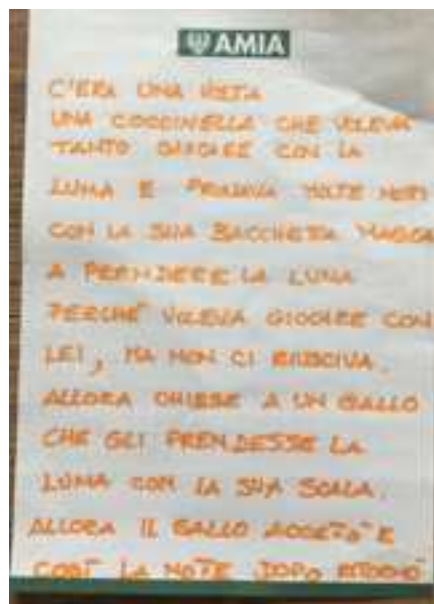 AMIA
C'ERA UNA VOLTA
UNA COCCINELLA CHE VOLEVA
TANTO GIOCARE CON LA
LUNA E PROVAVA TUTTE NOTTI
CON LA SUA BACCHETTA MAGICA
A PERNDERE LA LUNA
PERCHÉ VOLEVA GIOCARE CON
LEI, MA NON CI RIUSCIVA.
ALLORA CHIESE A UN GALLO
CHE GLI PRENDESSE LA
LUNA CON LA SUA SCALA.
ALLORA IL GALLO ACCETÒ E
COSÌ LA NOTE DOPO RITORNÒ